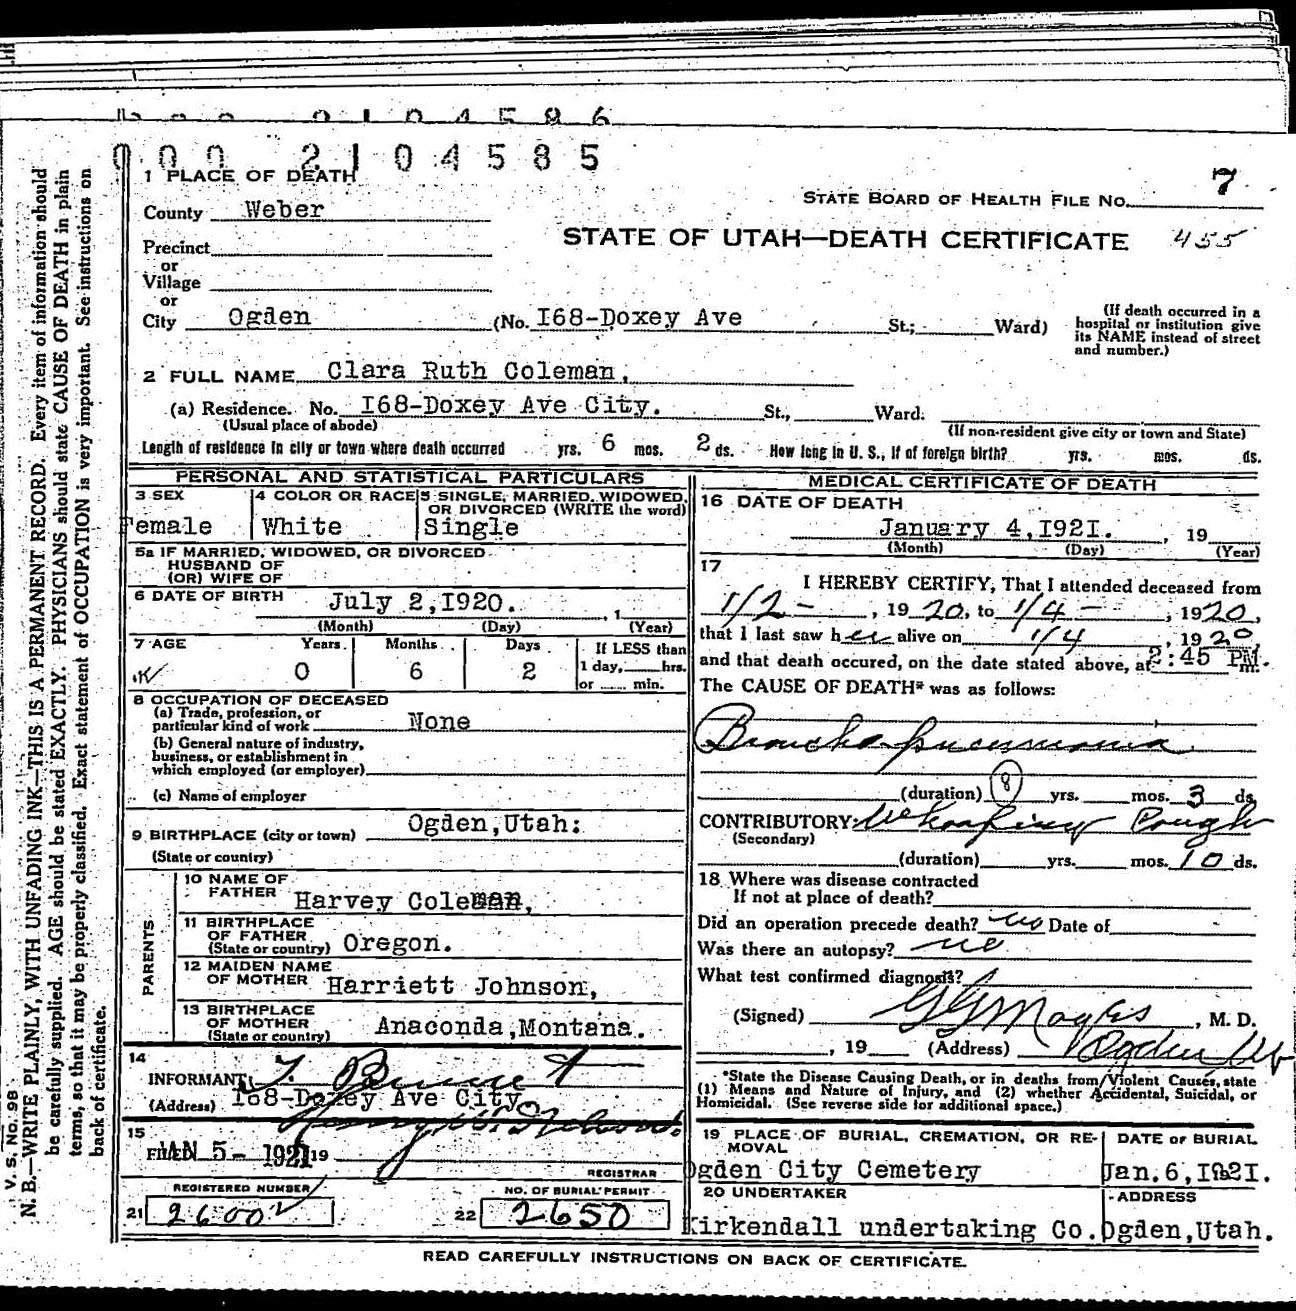 000 2104585
1 PLACE OF DEATH
STATE BOARD OF HEALTH FILE No. 7
County Weber
STATE OF UTAH—DEATH CERTIFICATE 455
Precinct
or
Village
or
City Ogden (No. I68-Doxey Ave St.; Ward)
(If death occurred in a
hospital or institution give
its NAME instead of street
and number.)
2 FULL NAME Clara Ruth Coleman,
(a) Residence. No. I68-Doxey Ave City. St., Ward.
(Usual place of abode)
(If non-resident give city or town and State)
Length of residence in city or town where death occurred yrs. 6 mos. 2 ds. How long in U. S., if of foreign birth? yrs. mos. ds.
PERSONAL AND STATISTICAL PARTICULARS
3 SEX
Female
4 COLOR OR RACE
White
5 SINGLE, MARRIED, WIDOWED,
OR DIVORCED (WRITE the word)
Single
5a IF MARRIED, WIDOWED, OR DIVORCED
HUSBAND OF
(OR) WIFE OF
6 DATE OF BIRTH July 2,I920. , 1
(Month) (Day) (Year)
7 AGE Years Months Days If LESS than
1 day, hrs.
or min.
0 6 2
8 OCCUPATION OF DECEASED
(a) Trade, profession, or
particular kind of work None
(b) General nature of industry,
business, or establishment in
which employed (or employer)
(c) Name of employer
9 BIRTHPLACE (city or town) Ogden,Utah:
(State or country)
PARENTS
10 NAME OF
FATHER Harvey Coleman,
11 BIRTHPLACE
OF FATHER
(State or country) Oregon.
12 MAIDEN NAME
OF MOTHER Harriett Johnson,
13 BIRTHPLACE
OF MOTHER
(State or country) Anaconda,Montana.
14
INFORMANT
(Address) I68-Doxey Ave City
15
FILED JAN 5- 1921 19
REGISTRAR
REGISTERED NUMBER
21 2600
NO. OF BURIAL PERMIT
22 2650
MEDICAL CERTIFICATE OF DEATH
16 DATE OF DEATH
January 4,I92I. , 19
(Month) (Day) (Year)
17
I HEREBY CERTIFY, That I attended deceased from
1/2 - , 1920, to 1/4 - , 1920,
that I last saw her alive on 1/4 , 1920
and that death occured, on the date stated above, at 2:45 PM. m.
The CAUSE OF DEATH* was as follows:
Broncho pneumonia
(duration) 8 yrs. mos. 3 ds.
CONTRIBUTORY: Whooping Cough
(Secondary)
(duration) yrs. mos. 10 ds.
18 Where was disease contracted
If not at place of death?
Did an operation precede death? no Date of -
Was there an autopsy? no
What test confirmed diagnosis?
(Signed) , M. D.
, 19 (Address) Ogden Ut
*State the Disease Causing Death, or in deaths from Violent Causes, state
(1) Means and Nature of Injury, and (2) whether Accidental, Suicidal, or
Homicidal. (See reverse side for additional space.)
19 PLACE OF BURIAL, CREMATION, OR RE-
MOVAL
Ogden City Cemetery
DATE OF BURIAL
Jan.6,I92I.
20 UNDERTAKER
Kirkendall undertaking Co.
ADDRESS
Ogden,Utah.
READ CAREFULLY INSTRUCTIONS ON BACK OF CERTIFICATE.
V. S. No. 9B
N. B.—WRITE PLAINLY, WITH UNFADING INK—THIS IS A PERMANENT RECORD. Every item of information should
be carefully supplied. AGE should be stated EXACTLY. PHYSICIANS should state CAUSE OF DEATH in plain
terms, so that it may be properly classified. Exact statement of OCCUPATION is very important. See instructions on
back of certificate.